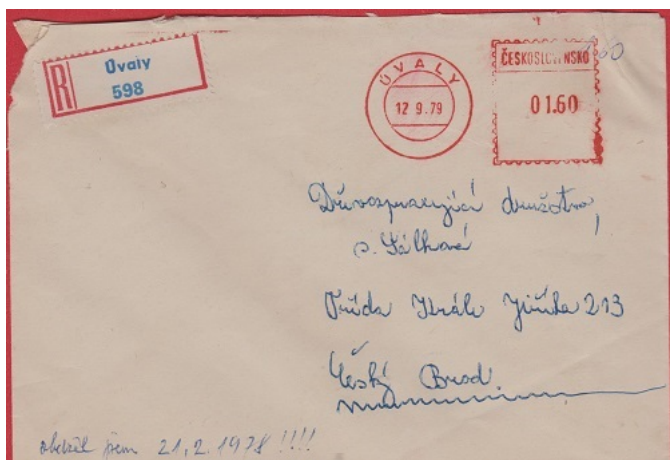 R
Úvaly
598
ÚVALY
12 9.79
ČESKOSLOVENSKO
01.60
Dřevozpracující družstvo,
p. Sálková
Třída Krále Jiřího 213
Český Brod
obdržel jsem 21.2.1978 !!!!